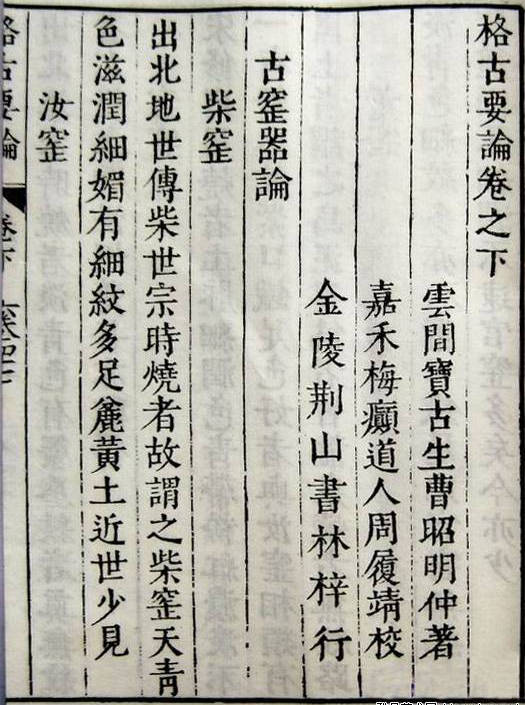 格古要論卷之下
雲間寶古生曹昭明仲著
嘉禾梅癲道人周履靖校
金陵荆山書林梓行
古窰器論
柴窰
出北地世傳柴世宗時燒者故謂之柴窰天青
色滋潤細媚有細紋多足麄黃土近世少見
汝窰
格古要論 卷下